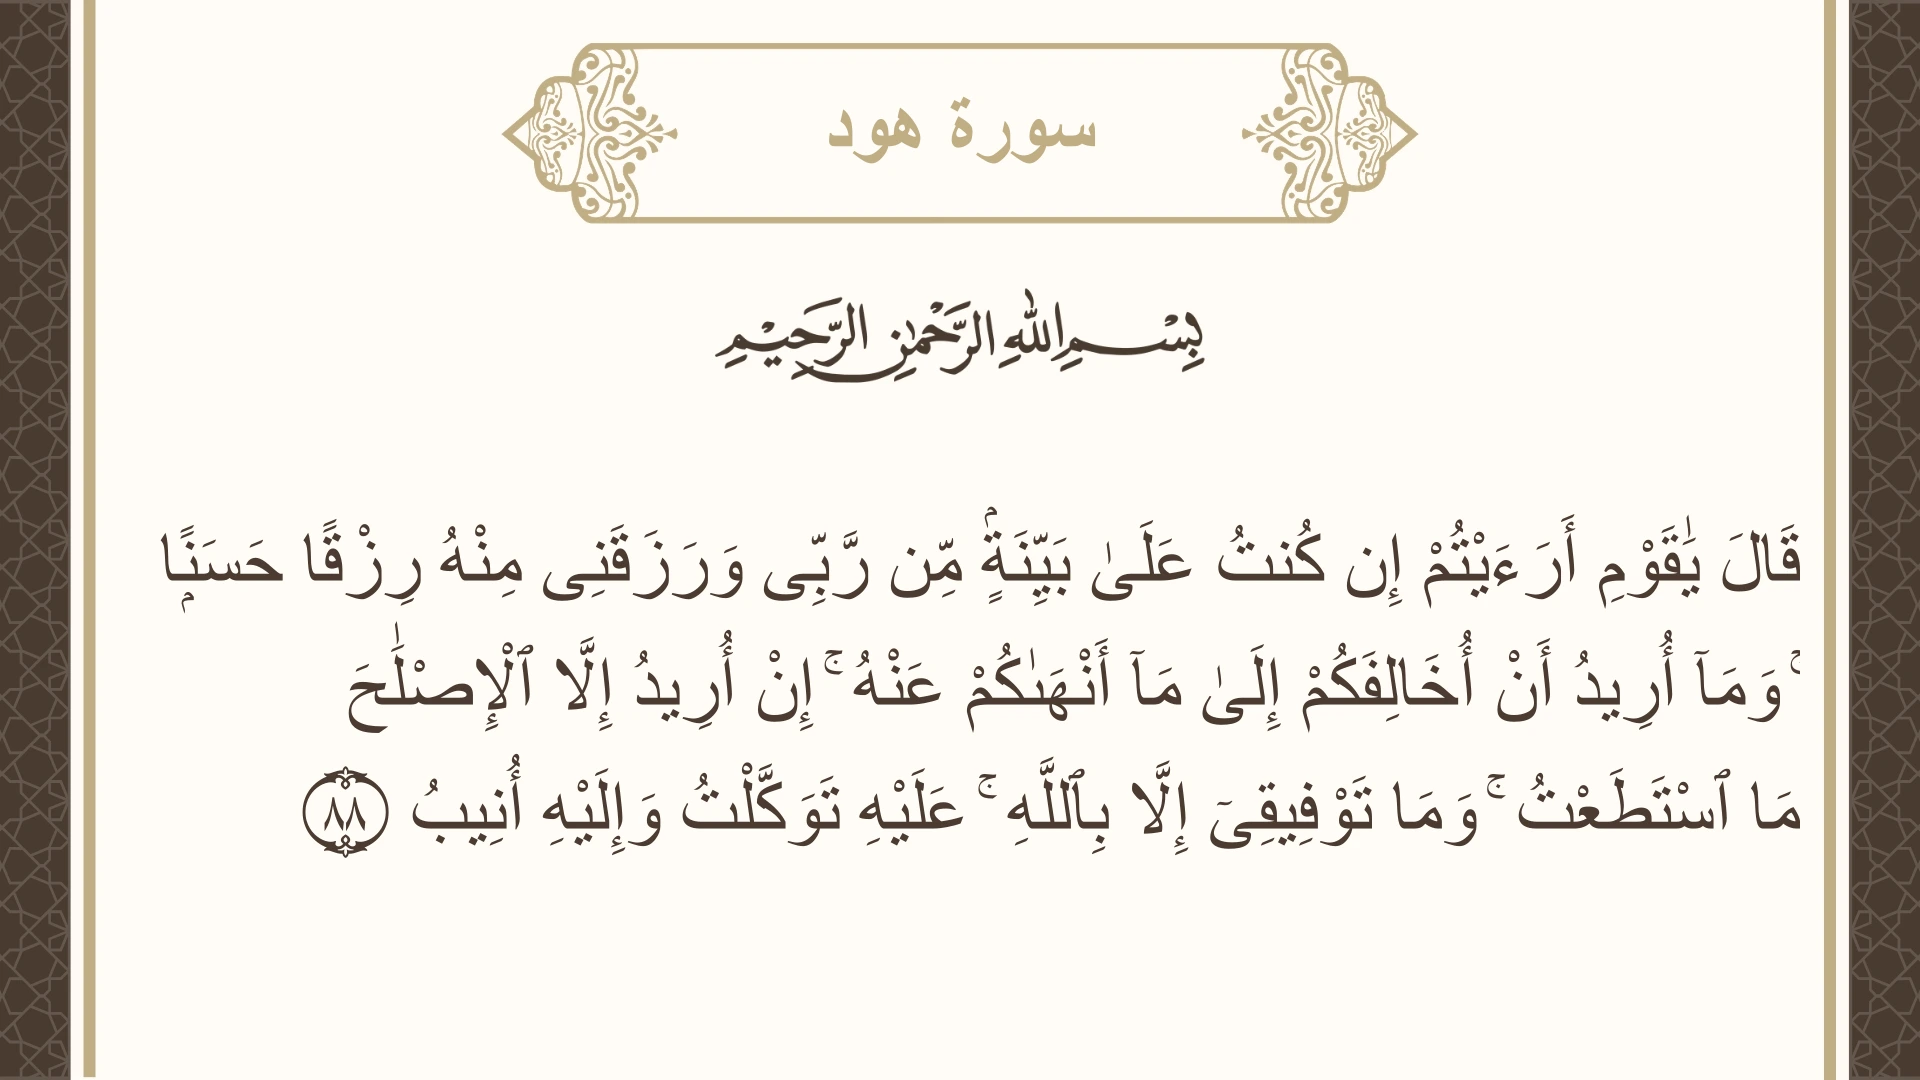 سورة هود
بِسْمِ اللهِ الرَّحْمٰنِ الرَّحِيْمِ
قَالَ يَٰقَوْمِ أَرَءَيْتُمْ إِن كُنتُ عَلَىٰ بَيِّنَةٍۢ مِّن رَّبِّى وَرَزَقَنِى مِنْهُ رِزْقًا حَسَنًۭا
ۚ وَمَآ أُرِيدُ أَنْ أُخَالِفَكُمْ إِلَىٰ مَآ أَنْهَىٰكُمْ عَنْهُ ۚ إِنْ أُرِيدُ إِلَّا ٱلْإِصْلَٰحَ
مَا ٱسْتَطَعْتُ ۚ وَمَا تَوْفِيقِىٓ إِلَّا بِٱللَّهِ ۚ عَلَيْهِ تَوَكَّلْتُ وَإِلَيْهِ أُنِيبُ ۝٨٨